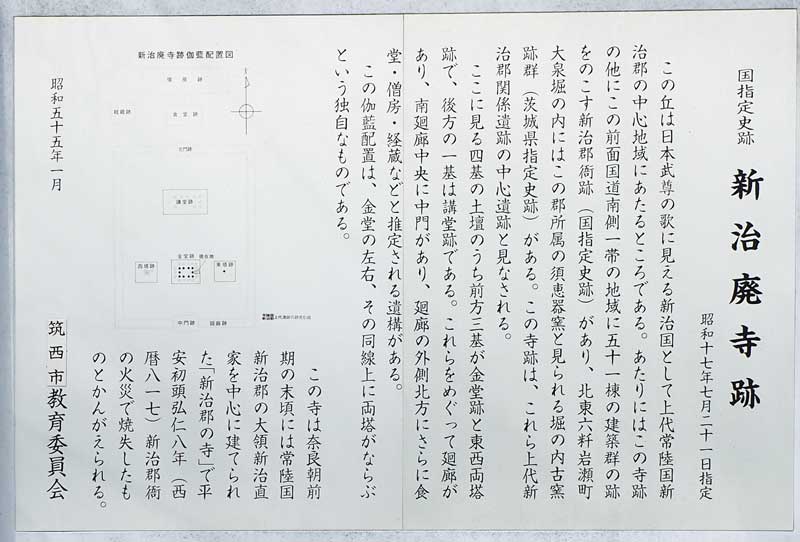 国指定史跡
新治廃寺跡
昭和十七年七月二十一日指定
この丘は日本武尊の歌に見える新治国として上代常陸国新
治郡の中心地域にあたるところである。あたりにはこの寺跡
の他にこの前面国道南側一帯の地域に五十一棟の建築群の跡
をのこす新治郡衙跡（国指定史跡）があり、北東六粁岩瀬町
大泉堀の内にはこの郡所属の須恵器窯と見られる堀の内古窯
跡群（茨城県指定史跡）がある。この寺跡は、これら上代新
治郡関係遺跡の中心遺跡と見なされる。
ここに見る四基の土壇のうち前方三基が金堂跡と東西両塔
跡で、後方の一基は講堂跡である。これらをめぐって廻廊が
あり、南廻廊中央に中門があり、廻廊の外側北方にさらに食
堂・僧房・経蔵などと推定される遺構がある。
この伽藍配置は、金堂の左右、その同線上に両塔がならぶ
という独自なものである。
この寺は奈良朝前
期の末頃には常陸国
新治郡の大領新治直
家を中心に建てられ
た「新治郡の寺」で平
安初頭弘仁八年（西
暦八一七）新治郡衙
の火災で焼失したも
のとかんがえられる。
新治廃寺跡伽藍配置図
僧房跡
食堂跡
北門跡
講堂跡
金堂跡
西塔跡
東塔跡
中門跡
廻廊跡
昭和五十五年一月
筑西市教育委員会